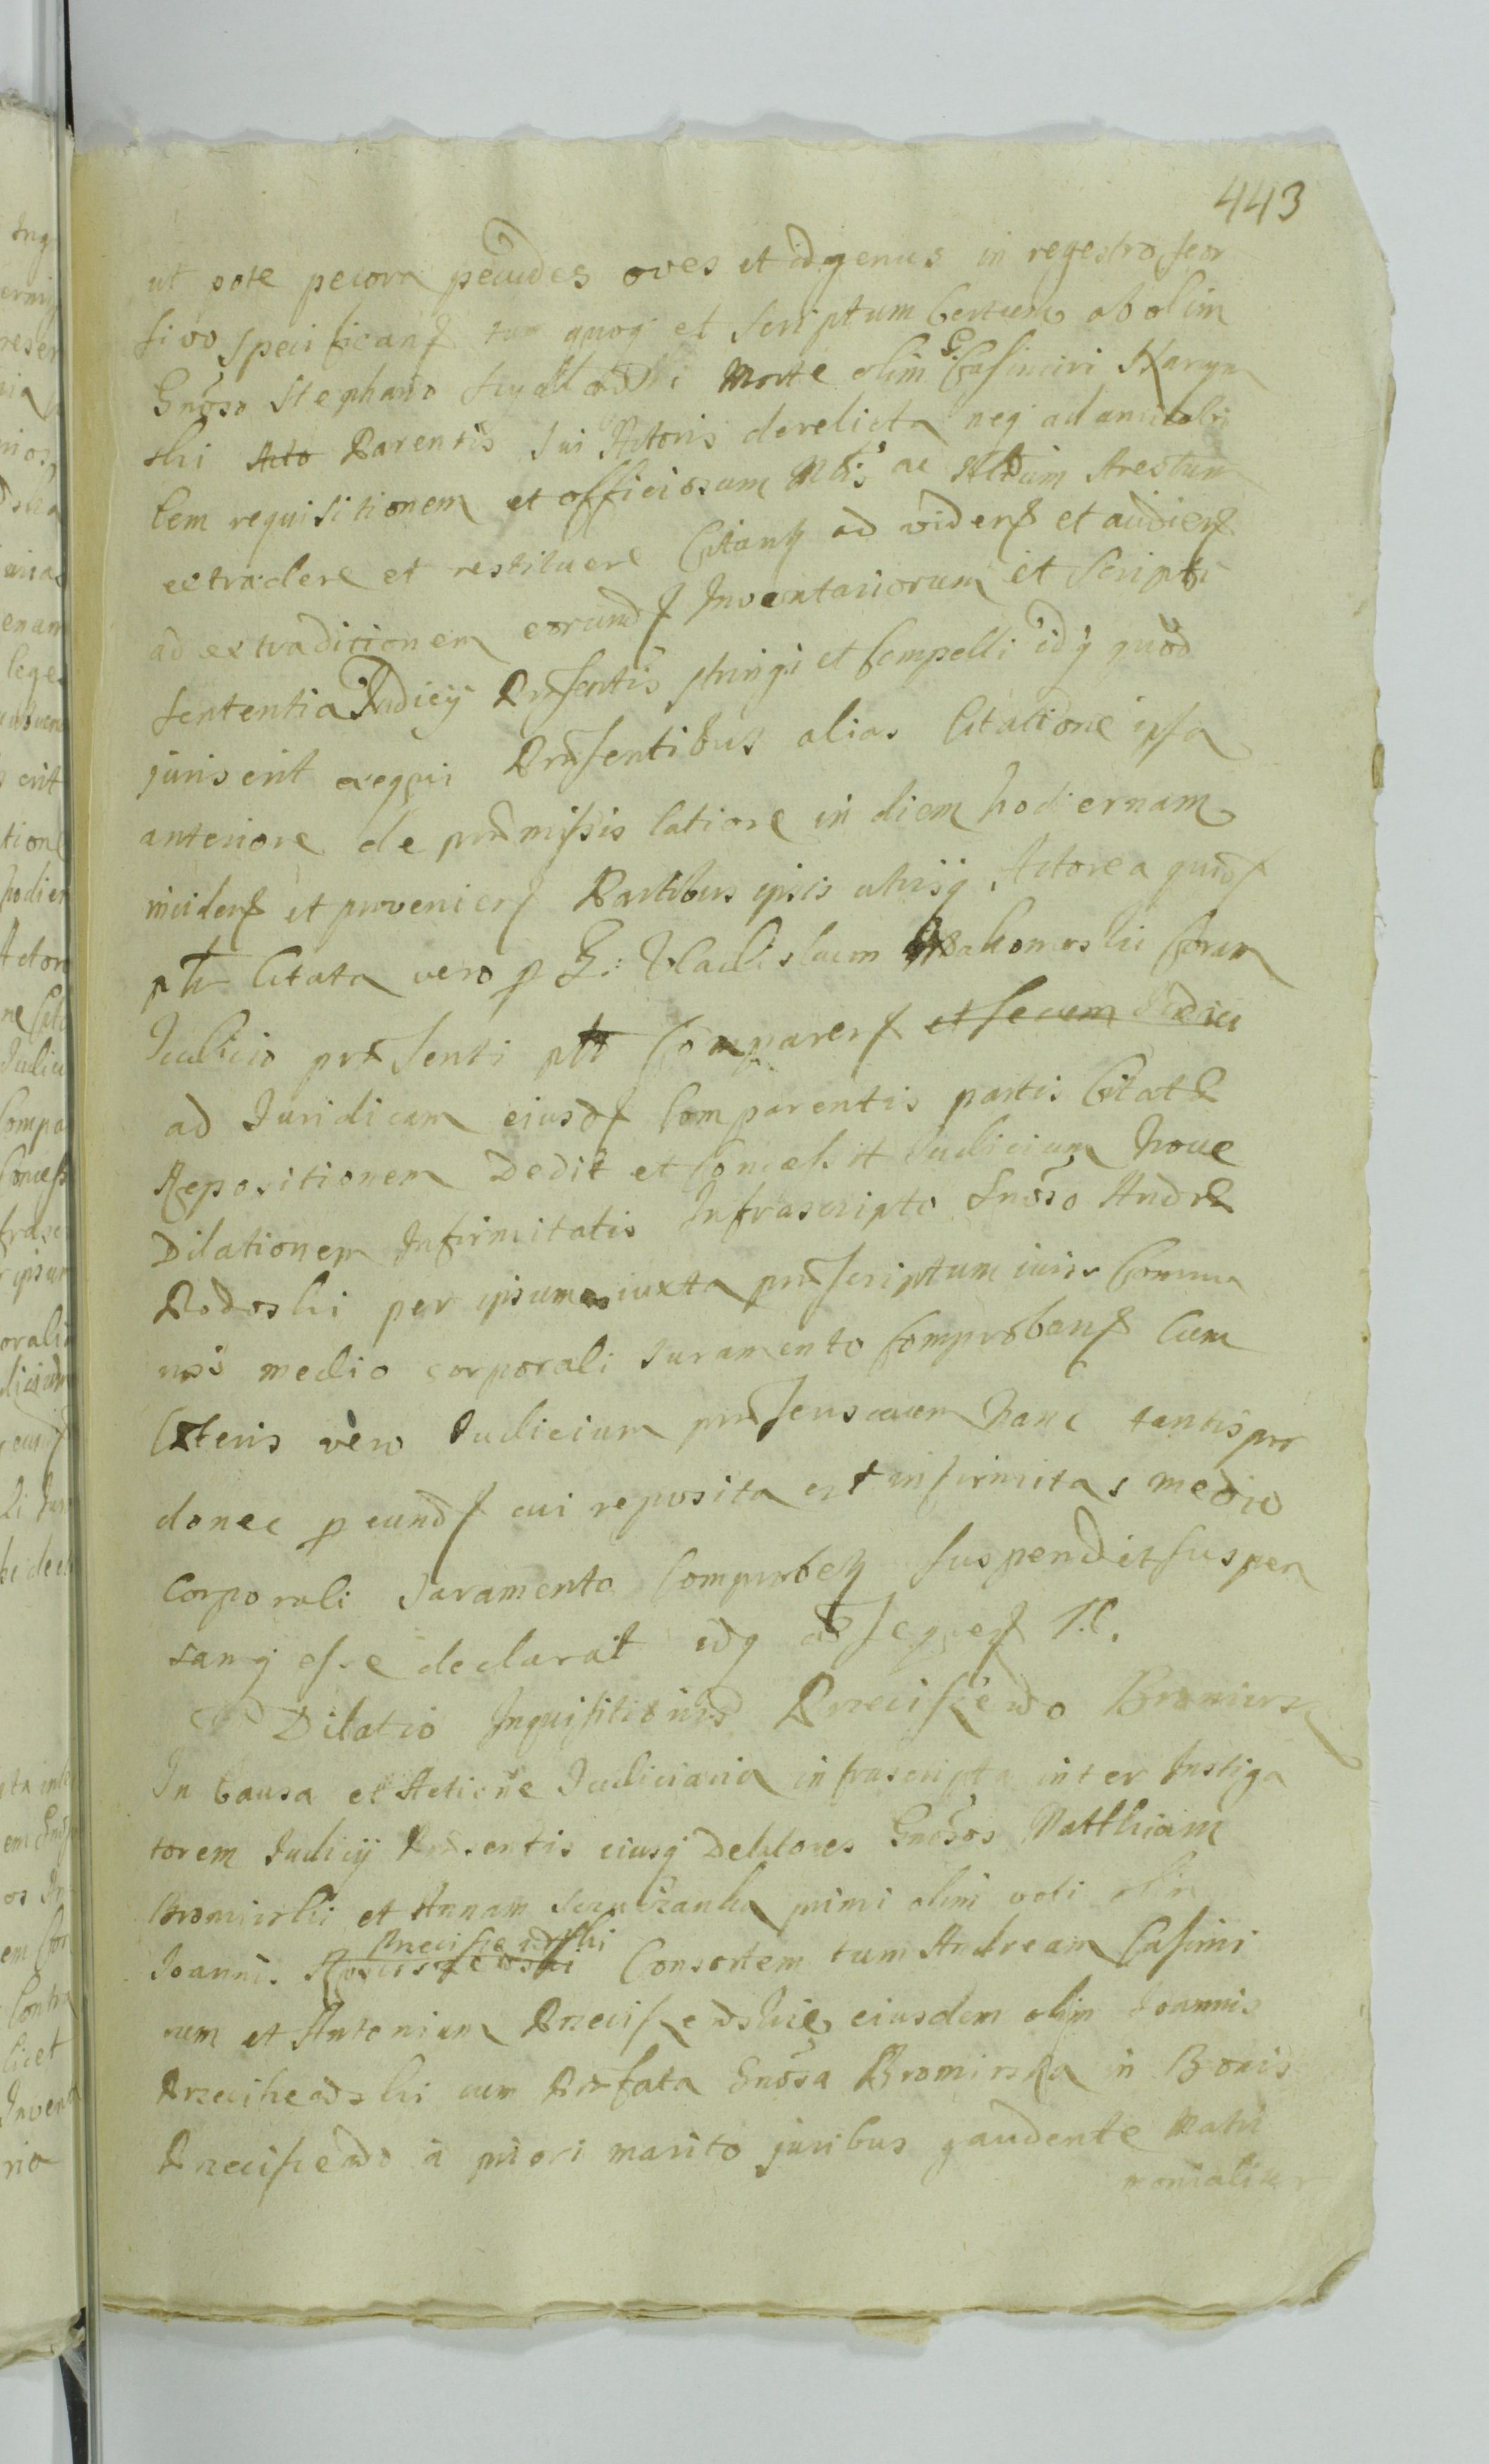 443
ut pote pecora pecudes oves et id genus in regestro seor
sivo specificanf tum quoq et Scriptum Certum ab olim
Gnoso Stephano morte olim G. Casimiri
ski Acto Parentis sui Actoris derelicta neq ad amicabi
lem requisitionem et officiosam ac Arestum
extradere et restituere Citanf ad videnf et audienf
ad extraditionem eorundf Inventariorum et Scripti
Sententia Judicij Prasentis stringi et Compelli idq quod
juris erit exeqvi Prasentibus alias Citatione ipsa
anteriore de pramissis latiore in diem hodiernam
incidenf et provenienf Partibus ipsis utrisq Actorea quidf
ptr Citata vero p G: Vladislaum Coram
Judicio prasenti ptr Comparenf et secum Judici
ad Juridicam eiusdf Comparentis partis Citatæ
Repositionem Dedit et Concessit Judicium hocce
Dilationem Infirmitatis Infrascripto Gnoso Andræ
Rodoski per ipsum iuxta præscriptum iuris Commu
nis medio corporali Juramento Comprobanf Cum
Cæteris vero Judicium præsens causam hanc tantisper
donec p eundf cui reposita est infirmitas medio
Corporali Juramento Comprobetz suspendit suspen
samq esse declarat idq ad seqvenf T.C.
Dilatio Inquisitionis Przeciszewo Bromiersz
In Causa et Actione Judiciaria infrascripta inter Instiga
torem Judicij Præsentis eiusq Delatores Gnosos Matthiam
Bromirski et Annam primi olim voti olim
Joannis Przeciszewski Consortem tum Andream Casimi
rum et Antonium Przeciszewskie eiusdem olim Joannis
Przeciszewski cum Præfata Gnosa Bromirska in Bonis
Przeciszewo a priori marito juribus gaudente Matri
monialiter